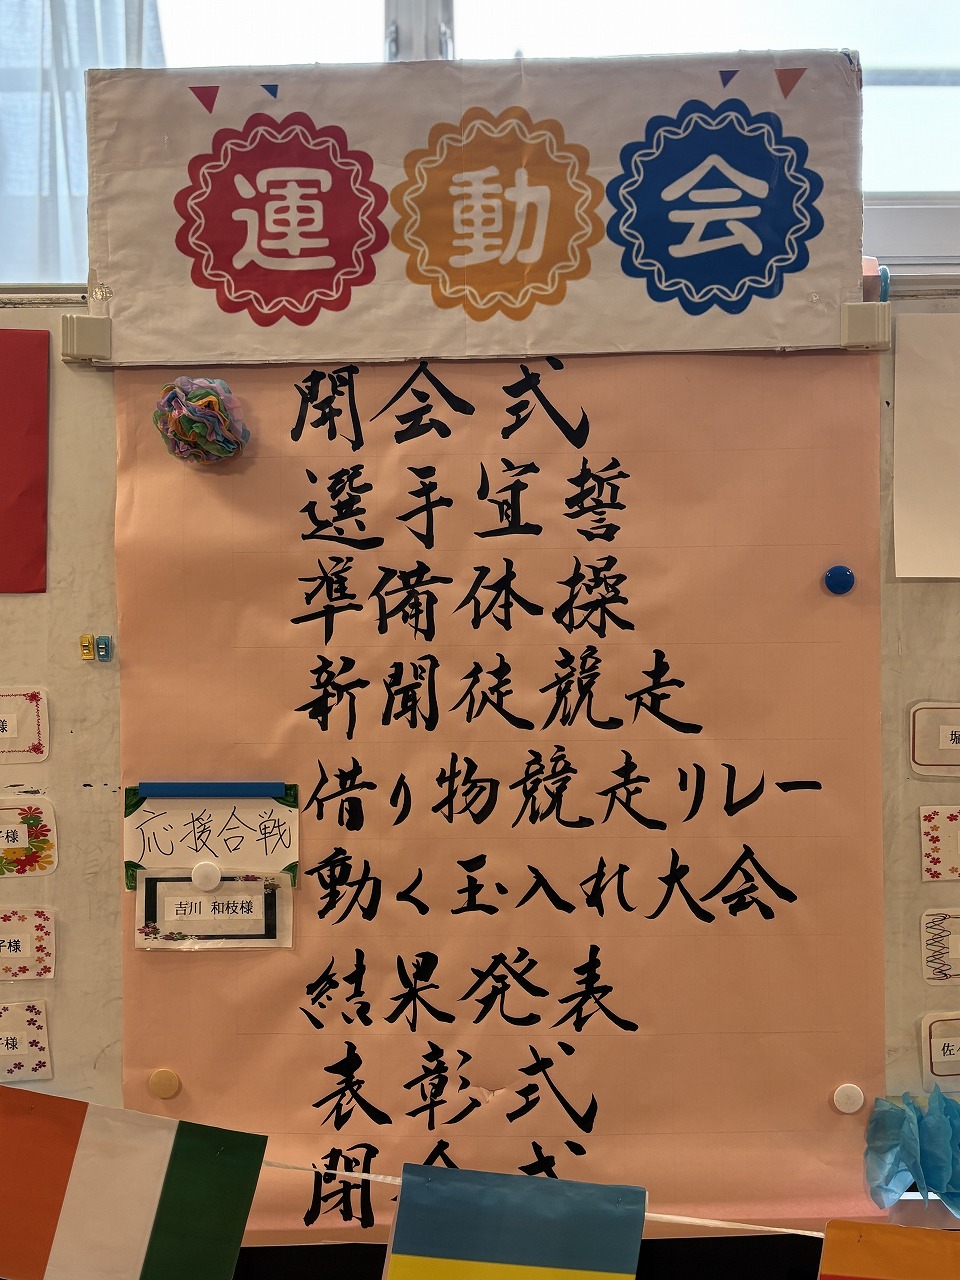 運動会
開会式
選手宣誓
準備体操
新聞徒競走
借り物競走リレー
動く玉入れ大会
応援合戦
吉川 和枝様
結果発表
表彰式
閉会式
様
子様
子様
子様
堀
佐々